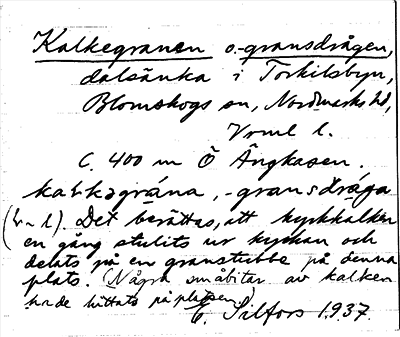 Kalkegranen o. -gransdrågen,
dalsänka i Torkilsbyn,
Blomskogs sn, Nordmarks hd,
Vrml l.
C. 400 m Ö Ängkasen.
kaḷkəgrána, -gransdråga
Det berättas, att kyrkkalken
en gång stulits ur kyrkan och
delats på en granstubbe på denna
plats. (Några småbitar av kalken
hade hittats på platsen.)
E. Silfors 1937.